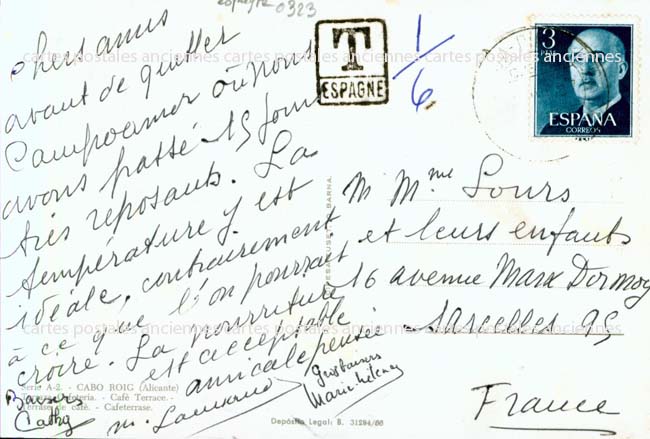 espagne 0323
chers amis
avant de quitter
Campoamor où nous
avons passé 15 jours
très reposants. La
température y est
idéale, contrairement
à ce que l'on pourrait
croire. La nourriture
est acceptable
amicale pensée
m. Laurent
Baisers
Cathy
Gros baisers
Marie hélène
T
ESPAGNE
1/6
3
PTAS
ESPAÑA
CORREOS
M Mme Lours
et leurs enfants
16 avenue Marx Dormoy
Sarcelles 95
France
Serie A-2. - CABO ROIG (Alicante)
Terraza cafetería. - Café Terrace. -
Terrasse de cafè. - Cafeterrase.
Depósito Legal: B. 31294/66
BARNA.
cartes postales anciennes cartes postales anciennes cartes postales anciennes
cartes postales anciennes cartes postales anciennes cartes postales anciennes
cartes postales anciennes cartes postales anciennes cartes postales anciennes